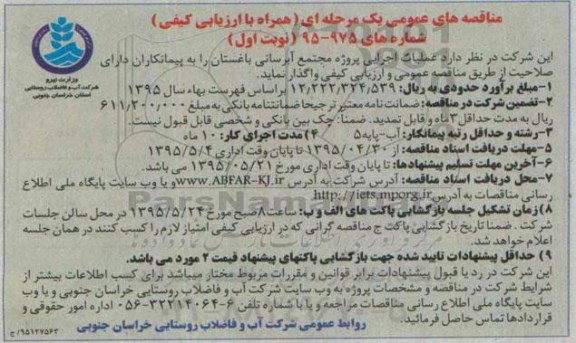 مناقصه های عمومی یک مرحله ای (همراه با ارزیابی کیفی)
شماره های ۹۷۵-۹۵ (نوبت اول)
وزارت نیرو
شرکت آب و فاضلاب روستایی
استان خراسان جنوبی
این شرکت در نظر دارد عملیات اجرایی پروژه مجتمع آبرسانی باغستان را به پیمانکاران دارای
صلاحیت از طریق مناقصه عمومی و ارزیابی کیفی واگذار نماید.
۱-مبلغ برآورد حدودی به ریال: ۱۲,۲۲۲,۳۲۴,۵۳۹ براساس فهرست بهاء سال ۱۳۹۵
۲-تضمین شرکت در مناقصه: ضمانت نامه معتبر ترجیحا ضمانتنامه بانکی به مبلغ ۶۱۱,۲۰۰,۰۰۰
ریال به مدت حداقل ۳ماه و قابل تمدید. ضمنا: چک بین بانکی و شخصی قابل قبول نیست.
۳-رشته و حداقل رتبه پیمانکار: آب-پایه۵ ۴) مدت اجرای کار: ۱۰ ماه
۵-مهلت دریافت اسناد مناقصه: از ۱۳۹۵/۰۴/۳۰ تا پایان وقت اداری ۱۳۹۵/۵/۴
۶-آخرین مهلت تسلیم پیشنهادها: تا پایان وقت اداری مورخ ۱۳۹۵/۰۵/۲۱ می باشد.
۷-محل دریافت اسناد مناقصه: آدرس شرکت به آدرس www.ABFAR-KJ.ir و یا وب سایت پایگاه ملی اطلاع
رسانی مناقصات به آدرس http://iets.mporg.ir
۸)زمان تشکیل جلسه بازگشایی پاکت های الف و ب: ساعت۸صبح مورخ ۱۳۹۵/۵/۲۴ در محل سالن جلسات
شرکت . ضمنا تاریخ بازگشایی پاکت ج مناقصه گرانی که در ارزیابی کیفی امتیاز لازم را کسب کنند در همان جلسه
اعلام خواهد شد.
۹) حداقل پیشنهادات تایید شده جهت بازگشایی پاکتهای پیشنهاد قیمت ۲ مورد می باشد.
این شرکت در رد یا قبول پیشنهادات برابر قوانین و مقررات مربوط مختار میباشد برای کسب اطلاعات بیشتر از
شرایط شرکت در مناقصه و مشخصات پروژه به وب سایت شرکت آب و فاضلاب روستایی خراسان جنوبی و یا وب
سایت پایگاه ملی اطلاع رسانی مناقصات مراجعه و یا با شماره تلفن ۶-۳۲۲۱۴۰۶۴-۰۵۶ اداره امور حقوقی و
قراردادها تماس حاصل فرمائید.
روابط عمومی شرکت آب و فاضلاب روستایی خراسان جنوبی
۹۵۱۲۷۵۶۳/ج